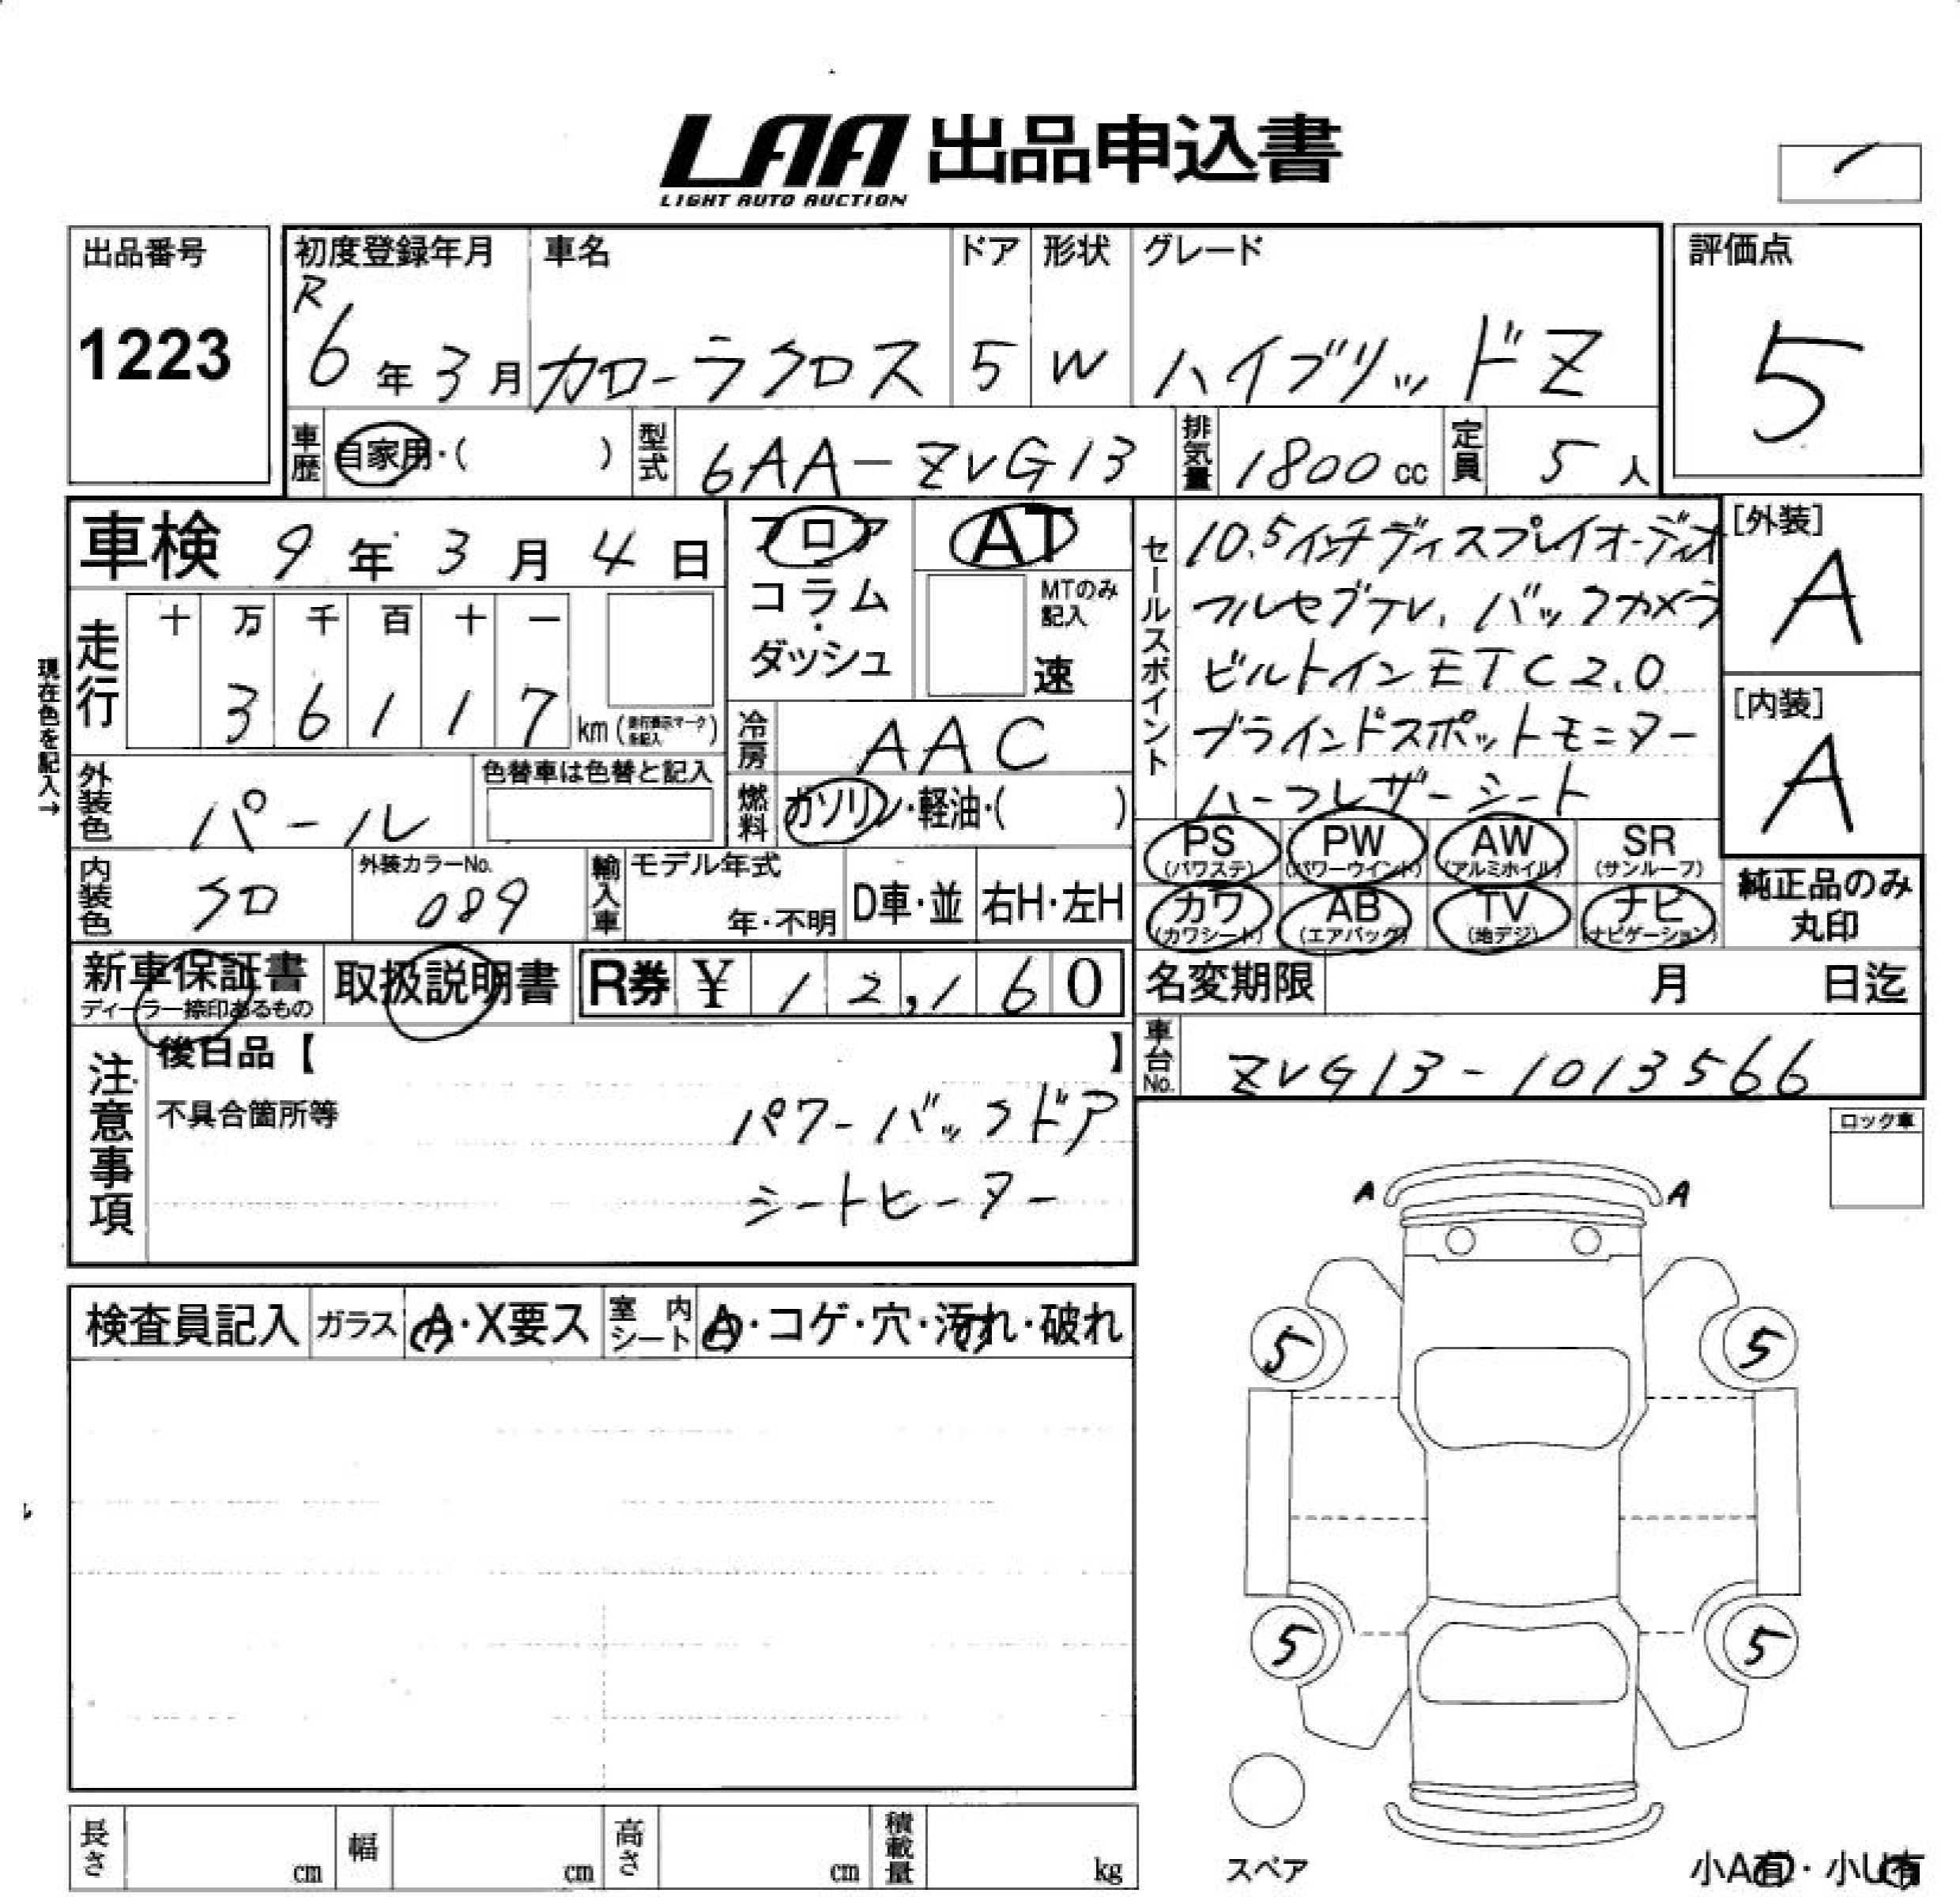 LAA 出品申込書
LIGHT AUTO AUCTION
出品番号
1223
初度登録年月
R6年3月
車名
カローラクロス
ドア
5
形状
W
グレード
ハイブリッドZ
評価点
5
車歴 自家用・( )
型式 6AA-ZVG13
排気量 1800cc
定員 5人
車検 9年3月4日
フロア
コラム
・
ダッシュ
AT
MTのみ
記入
速
セールスポイント
10.5インチディスプレイオーディオ
フルセグTV、バックカメラ
ビルトインETC2.0
ブラインドスポットモニター
ハーフレザーシート
[外装]
A
[内装]
A
現在色を記入→
走行
十 万 千 百 十 一
3 6 1 1 7 km (走行表示マーク を記入)
冷房 AAC
外装色 パール
色替車は色替と記入
燃料 ガソリン・軽油・( )
PS (パワステ)
PW (パワーウインド)
AW (アルミホイル)
SR (サンルーフ)
カワ (カワシート)
AB (エアバッグ)
TV (地デジ)
ナビ (ナビゲーション)
純正品のみ
丸印
内装色 クロ
外装カラーNo.
089
輸入車 モデル年式
年・不明
D車・並
右H・左H
新車保証書
ディーラー捺印あるもの
取扱説明書
R券 ¥ 12,160
名変期限 月 日迄
車台No. ZVG13-1013566
注意事項
後日品【 】
不具合箇所等
パワーバックドア
シートヒーター
ロック車
A A
検査員記入 ガラス A・X要ス 室内シート A・コゲ・穴・汚れ・破れ
5 5
5 5
スペア
長さ cm 幅 cm 高さ cm 積載量 kg
小A有・小U有